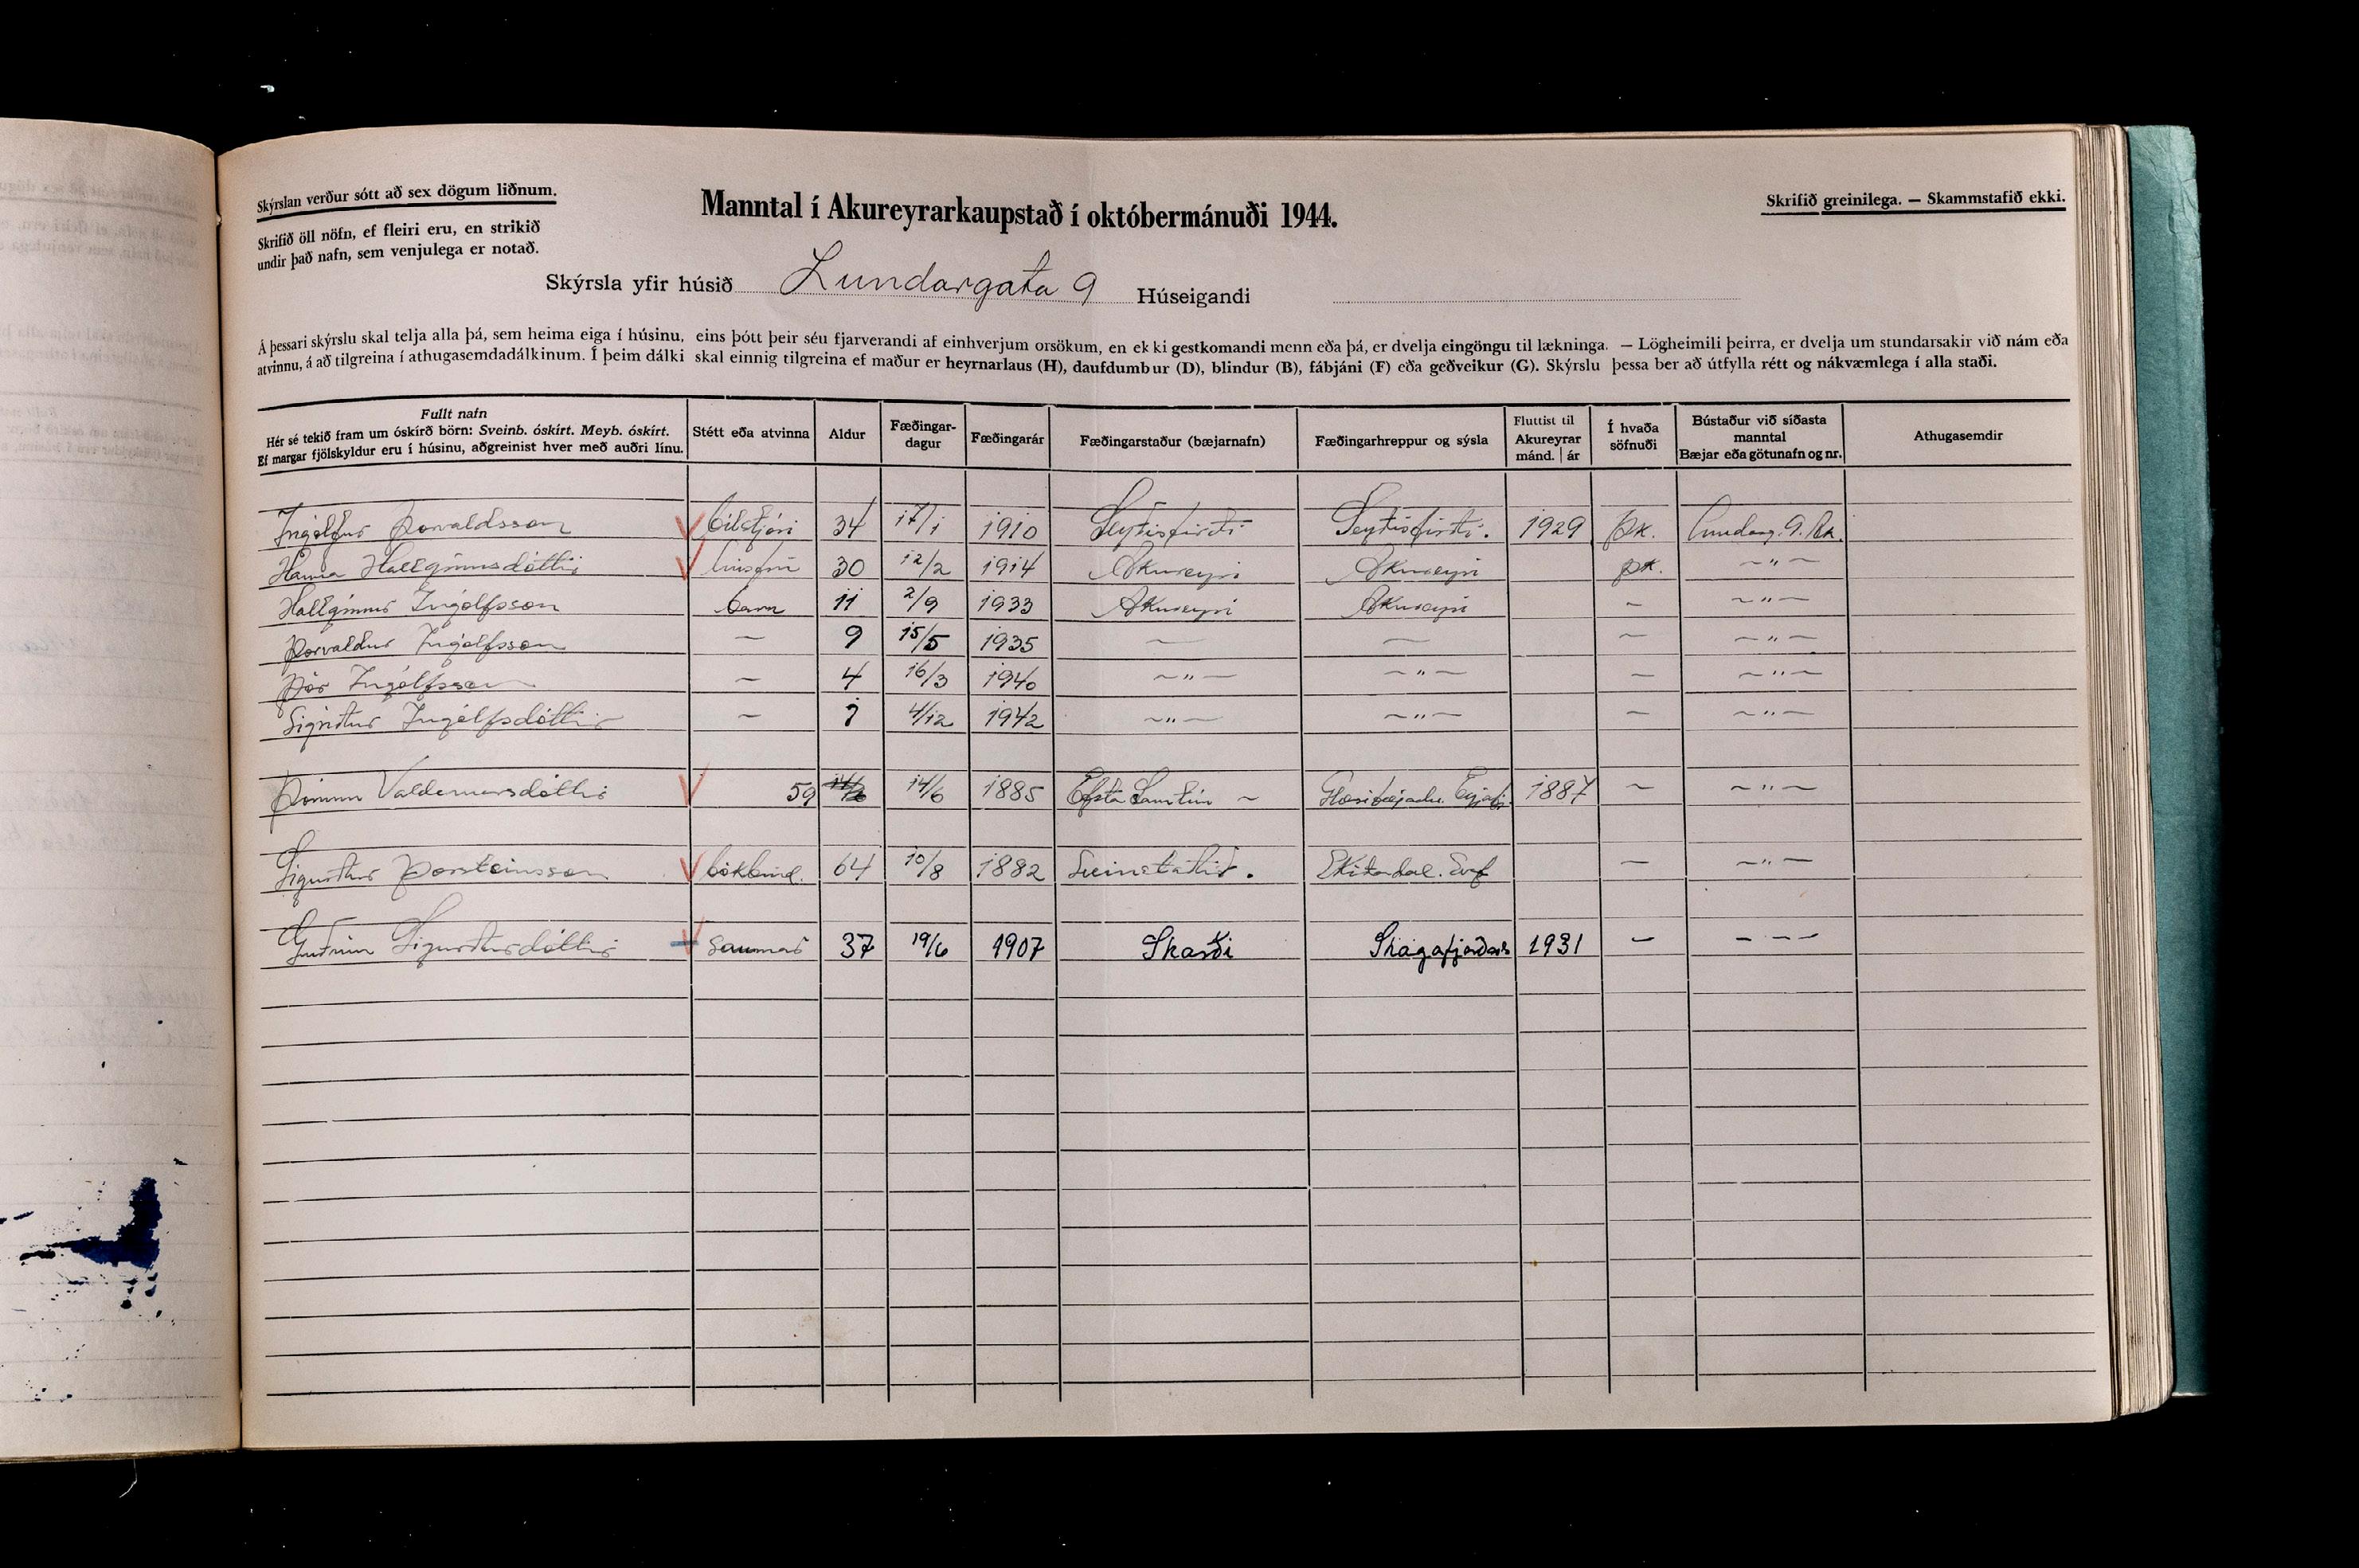 Skýrslan verður sótt að sex dögum liðnum.
Skrifið öll nöfn, ef fleiri eru, en strikið
undir það nafn, sem venjulega er notað.
Manntal í Akureyrarkaupstað í októbermánuði 1944.
Skrifið greinilega. — Skammstafið ekki.
Skýrsla yfir húsið Lundargata 9 Húseigandi
Á þessari skýrslu skal telja alla þá, sem heima eiga í húsinu, eins þótt þeir séu fjarverandi af einhverjum orsökum, en ekki gestkomandi menn eða þá, er dvelja eingöngu til lækninga. — Lögheimili þeirra, er dvelja um stundarsakir við nám eða
atvinnu, á að tilgreina í athugasemdadálkinum. Í þeim dálki skal einnig tilgreina ef maður er heyrnarlaus (H), daufdumbur (D), blindur (B), fábjáni (F) eða geðveikur (G). Skýrslu þessa ber að útfylla rétt og nákvæmlega í alla staði.
Fullt nafn
Hér sé tekið fram um óskírð börn: Sveinb. óskírt. Meyb. óskírt.
Ef margar fjölskyldur eru í húsinu, aðgreinist hver með auðri línu.
Stétt eða atvinna
Aldur
Fæðingar-
dagur
Fæðingarár
Fæðingarstaður (bæjarnafn)
Fæðingarhreppur og sýsla
Fluttist til
Akureyrar
mánd. | ár
Í hvaða
söfnuði
Bústaður við síðasta
manntal
Bæjar eða götunafn og nr.
Athugasemdir
Ingólfur Þorvaldsson bílstjóri 34 17/1 1910 Seyðisfirði Seyðisfirði. 1929 þk. Lundarg. 9. Ak.
Hanna Hallgrímsdóttir húsfrú 30 12/2 1914 Akureyri Akureyri þk. ~ " ~
Hallgrímur Ingólfsson barn 11 2/9 1933 Akureyri Akureyri ~ ~ " ~
Þorvaldur Ingólfsson ~ 9 15/5 1935 ~ ~ ~ ~ " ~
Þór Ingólfsson ~ 4 16/3 1940 ~ " ~ ~ " ~ ~ ~ " ~
Sigríður Ingólfsdóttir ~ 4/12 1942 ~ " ~ ~ " ~ ~ ~ " ~
Þórunn Valdemarsdóttir 59 14/6 1885 Efsta Samtún ~ Glæsibæjarhr. Eyjafj. 1887 ~ ~ " ~
Sigurður Þorsteinsson bókbind. 64 10/8 1882 Skriðdal. ~ ~ " ~
Guðrún Sigurðardóttir saumar 37 19/6 1907 Skarði Skagafjarðars 1931 ~ ~ ~ ~